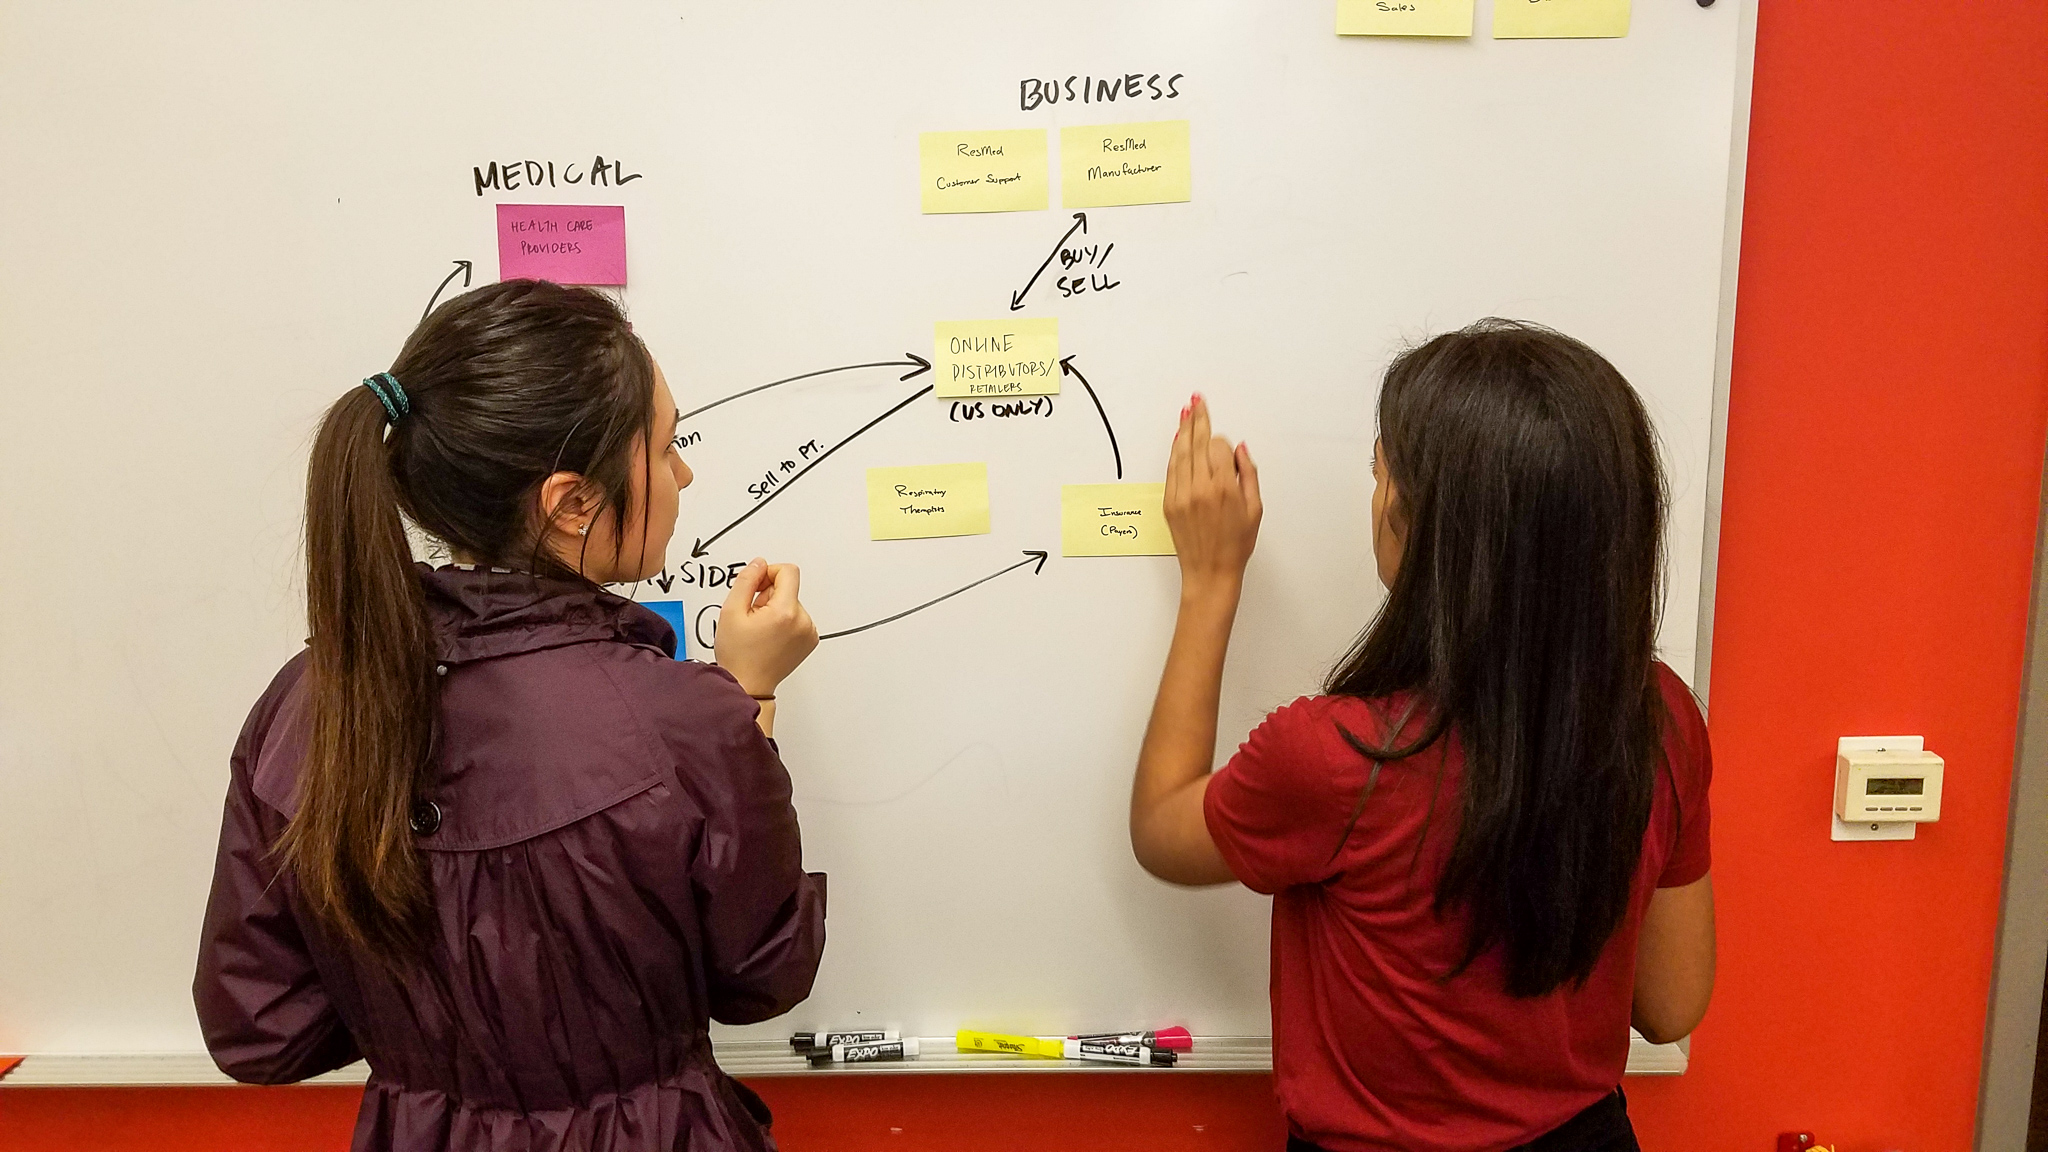 Sales
BUSINESS
ResMed
Customer Support
ResMed
Manufacturer
MEDICAL
HEALTH CARE
PROVIDERS
BUY/
SELL
ONLINE
DISTRIBUTORS/
RETAILERS
(US ONLY)
Sell to PT.
Respiratory
Therapists
Insurance
(Payers)
SIDE
EXPO
EXPO
Sharpie
EXPO